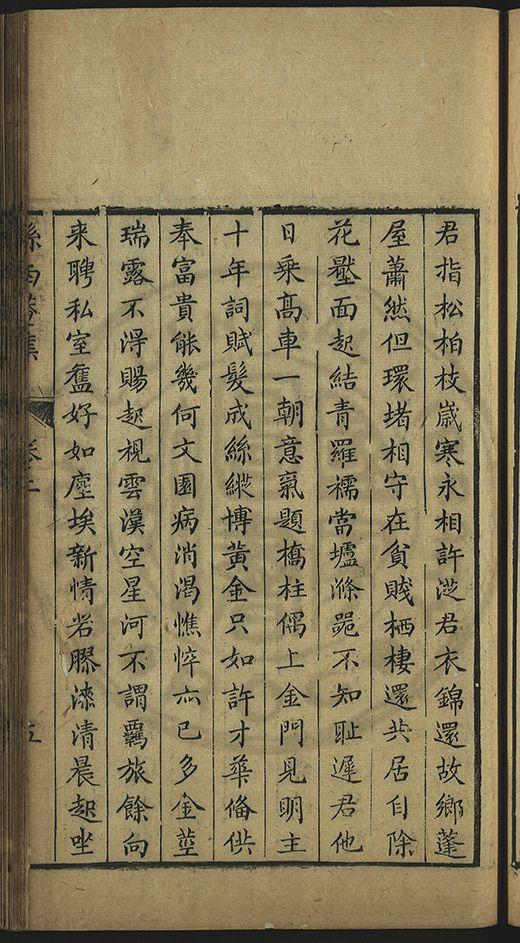 君指松柏枝歲寒永相許從君衣錦還故鄉蓬
屋蕭然但環堵相守在貧賤栖棲還共居自除
花壂面起結青羅襦當壚滌噐不知耻遲君他
日乗髙車一朝意氣題橋柱偶上金門見明主
十年詞賦髮成絲縱博黃金只如許才華俻供
奉富貴能幾何文園病消渴憔悴亦已多金莖
瑞露不淂賜起視雲漢空星河不謂羇旅餘向
来聘私室舊好如塵埃新情若膠漆清晨起坐
孫西菴集 卷二 五